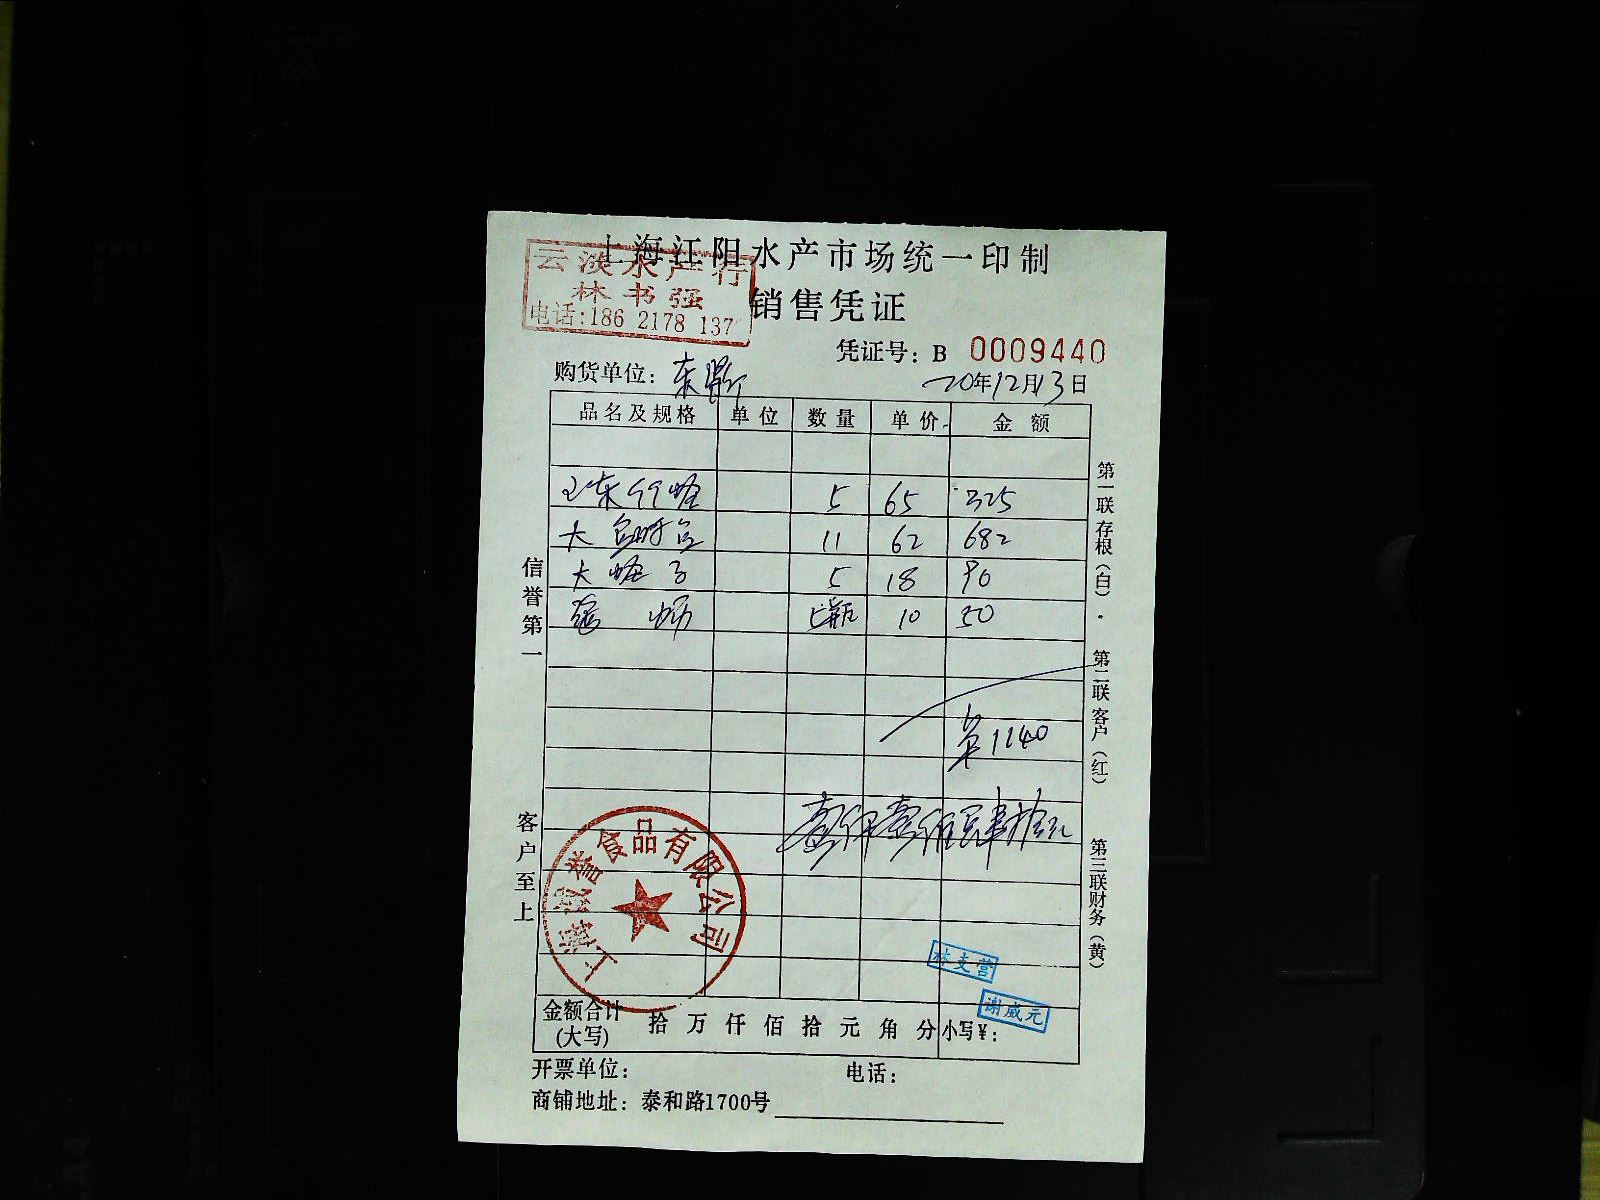 上海江阳水产市场统一印制
云淡水产行
林书强
电话:186 2178 137
销售凭证
凭证号: B 0009440
购货单位: 东
20年12月13日
品名及规格 单位 数量 单价 金额
5 65 325
大 11 62 682
大 子 5 18 90
5瓶 10 50
1140
壹仟壹佰肆拾元
信誉第一
客户至上
第一联存根(白)
第二联客户(红)
第三联财务(黄)
上海诚誉食品有限公司
林支营
谢威元
金额合计(大写) 拾万仟佰拾元角分 小写¥:
开票单位: 电话:
商铺地址: 泰和路1700号